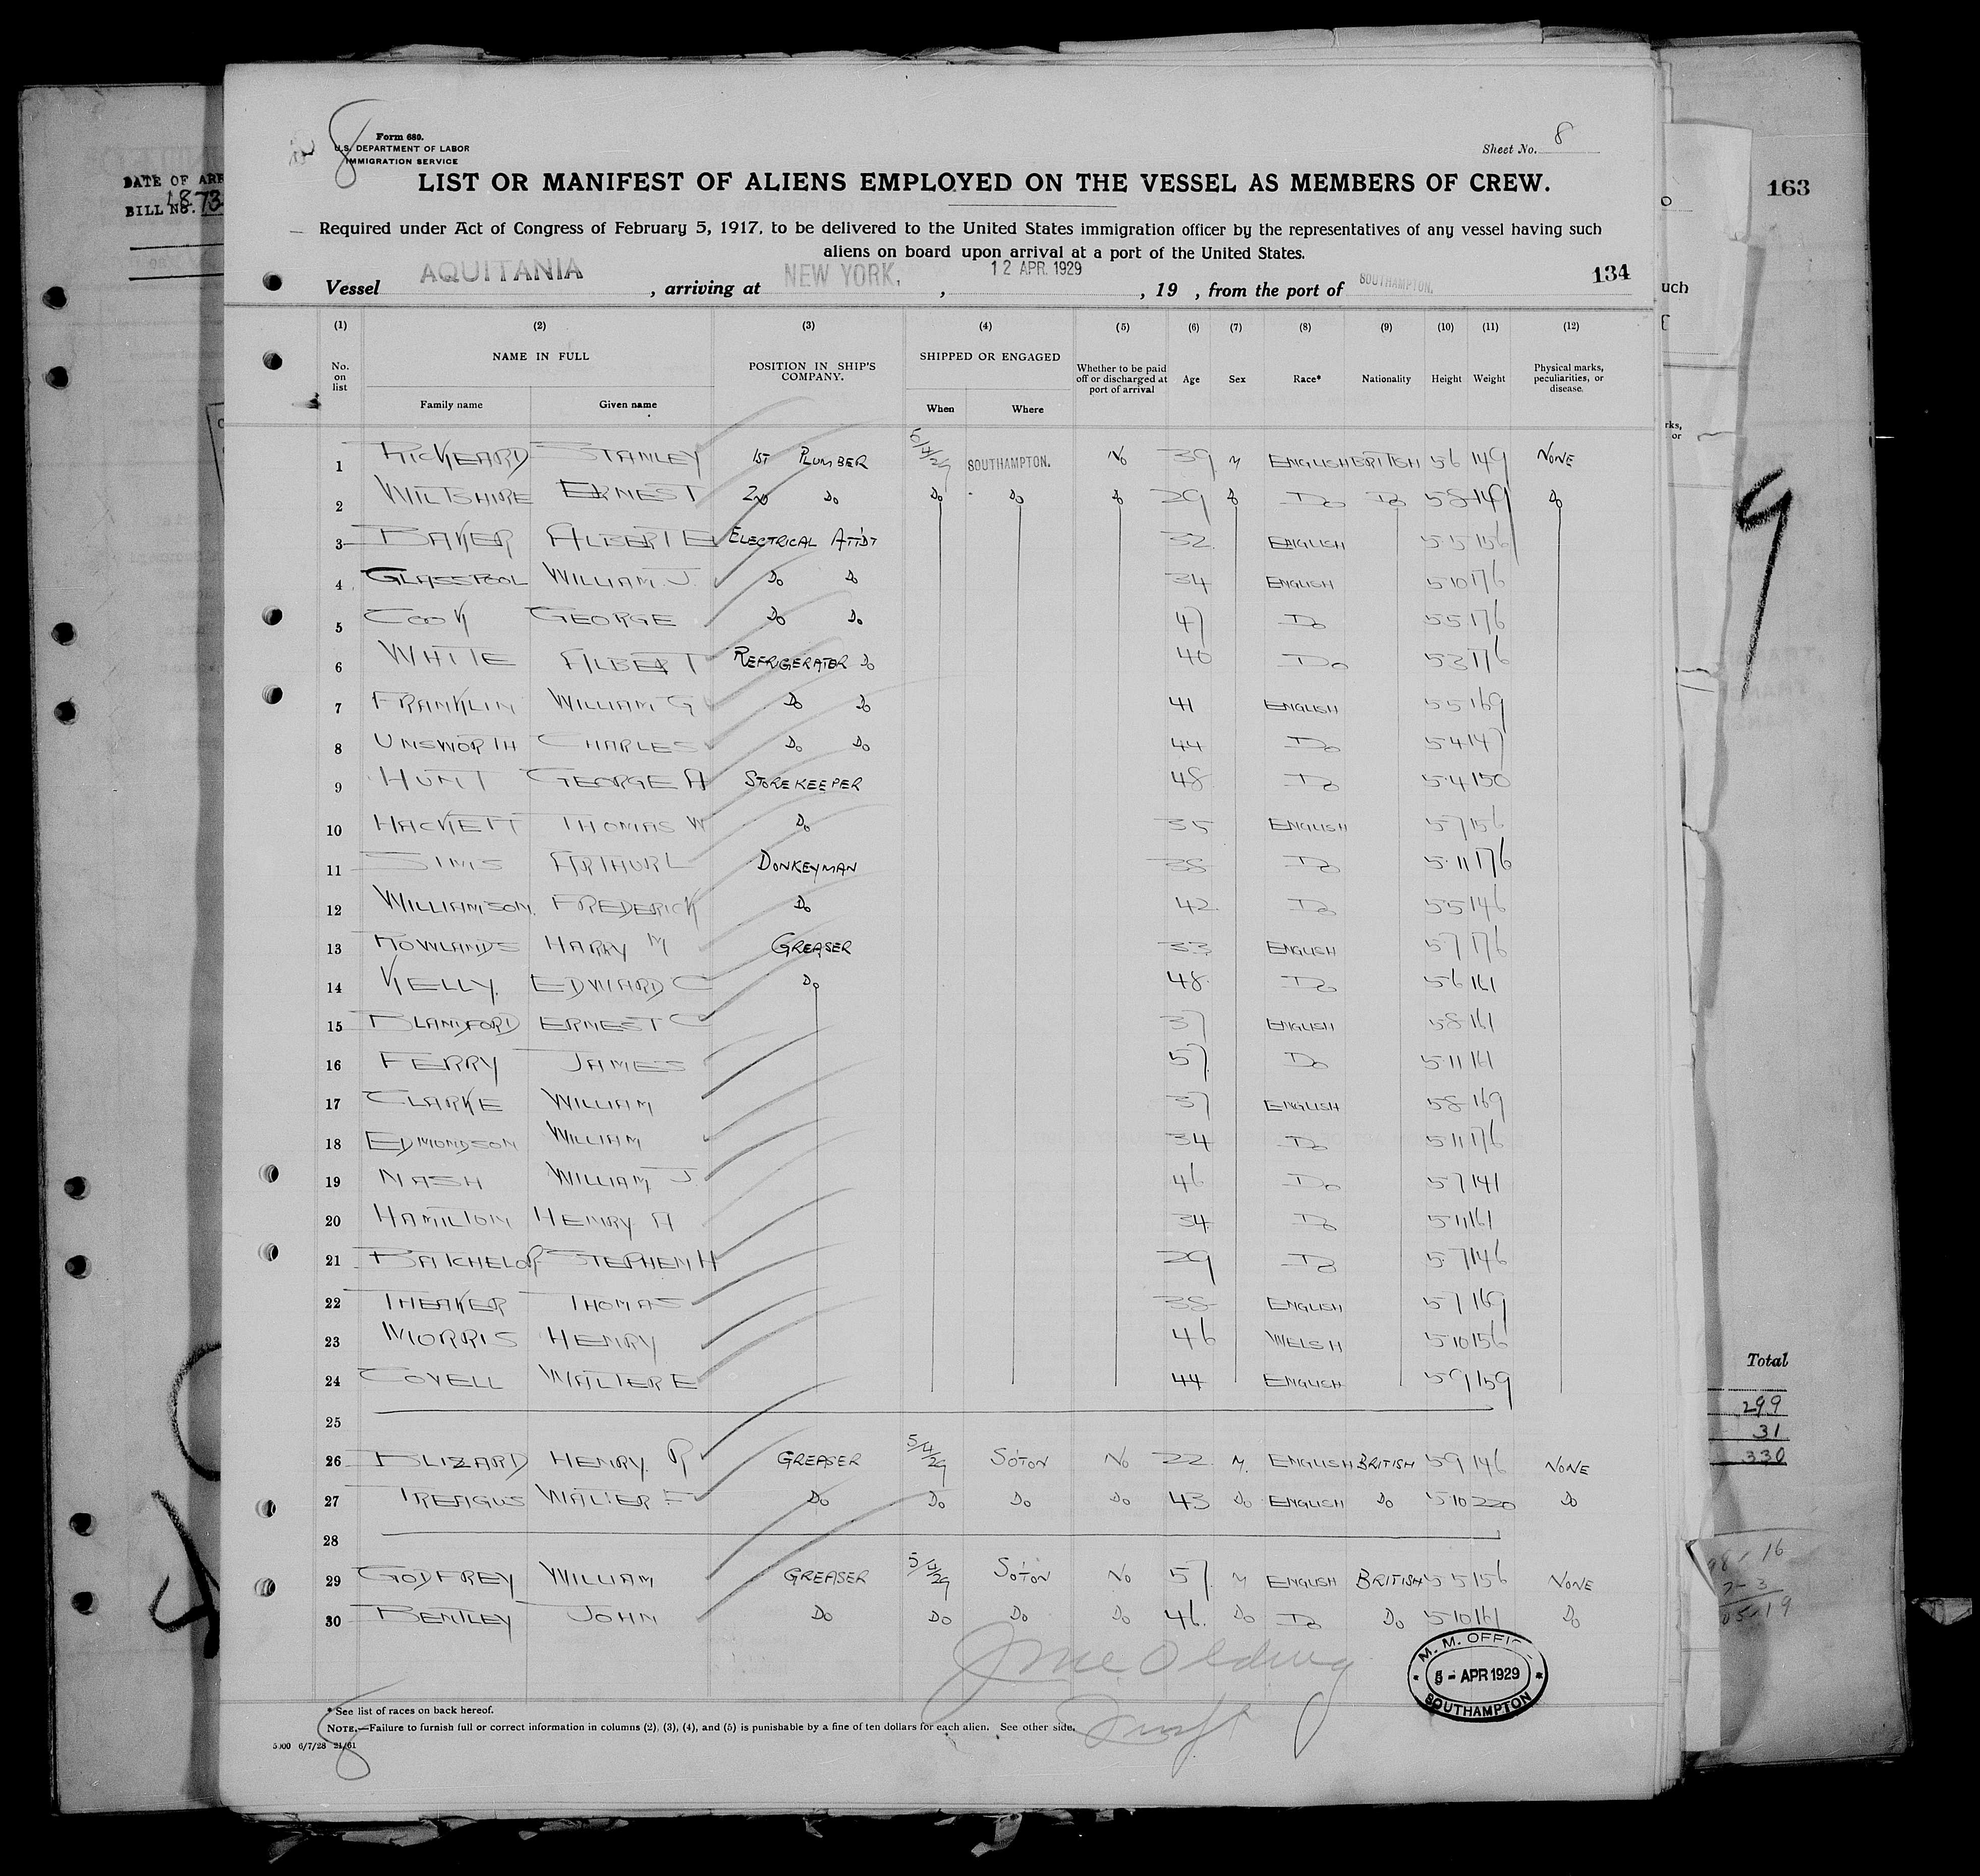 Form 680.
U.S. DEPARTMENT OF LABOR
IMMIGRATION SERVICE
Sheet No. 8
LIST OR MANIFEST OF ALIENS EMPLOYED ON THE VESSEL AS MEMBERS OF CREW.
Required under Act of Congress of February 5, 1917, to be delivered to the United States immigration officer by the representatives of any vessel having such
aliens on board upon arrival at a port of the United States.
Vessel AQUITANIA, arriving at NEW YORK, 12 APR. 1929, 19 , from the port of SOUTHAMPTON. 134
(1) (2) (3) (4) (5) (6) (7) (8) (9) (10) (11) (12)
No. on list NAME IN FULL POSITION IN SHIP'S COMPANY. SHIPPED OR ENGAGED Whether to be paid off or discharged at port of arrival Age Sex Race* Nationality Height Weight Physical marks, peculiarities, or disease.
Family name Given name When Where
1 RICKEARD STANLEY 1ST PLUMBER 5/4/29 SOUTHAMPTON. No 39 M ENGLISH BRITISH 5 6 149 NONE
2 WILTSHIRE ERNEST 2ND Do Do Do Do 29 Do Do Do 5 8 149 Do
3 BAKER ALBERT E ELECTRICAL ATTDT 32 ENGLISH 5 5 156
4 GLASSPOOL WILLIAM. J. Do Do 34 ENGLISH 5 10 176
5 COOK GEORGE Do Do 47 Do 5 5 176
6 WHITE ALBERT REFRIGERATOR Do 40 Do 5 3 176
7 FRANKLIN WILLIAM G Do Do 41 ENGLISH 5 5 169
8 UNSWORTH CHARLES Do Do 44 Do 5 4 147
9 HUNT GEORGE A STOREKEEPER 48 Do 5 4 150
10 HACKETT THOMAS W Do 35 ENGLISH 5 7 156
11 SIMS ARTHUR L DONKEYMAN 38 Do 5 11 176
12 WILLIAMSON. FREDERICK Do 42 Do 5 5 146
13 ROWLANDS HARRY M GREASER 33 ENGLISH 5 7 176
14 KELLY. EDWARD C Do 48 Do 5 6 161
15 BLANDFORD ERNEST C 37 ENGLISH 5 8 161
16 FERRY JAMES 57 Do 5 11 161
17 CLARKE WILLIAM 37 ENGLISH 5 8 169
18 EDMONDSON WILLIAM 34 Do 5 11 176
19 NASH WILLIAM J. 46 Do 5 7 141
20 HAMILTON HENRY A 34 Do 5 11 161
21 BATCHELOR STEPHEN H 29 Do 5 7 146
22 THEAKER THOMAS 38 ENGLISH 5 7 169
23 MORRIS HENRY 46 WELSH 5 10 156
24 COVELL WALTER E 44 ENGLISH 5 9 159
25
26 BLIZARD HENRY. R GREASER 5/4/29 SOTON No 22 M. ENGLISH BRITISH 5 9 146 NONE
27 TREAGUS WALTER F Do Do Do Do 43 Do ENGLISH Do 5 10 220 Do
28
29 GODFREY WILLIAM GREASER 5/4/29 SOTON No 57 M ENGLISH BRITISH 5 5 156 NONE
30 BENTLEY JOHN Do Do Do Do 46. Do Do Do 5 10 161 Do
M. M. OFFIC
5 - APR 1929
SOUTHAMPTON
* See list of races on back hereof.
NOTE.—Failure to furnish full or correct information in columns (2), (3), (4), and (5) is punishable by a fine of ten dollars for each alien. See other side.
6/7/28 21/61
DATE OF ARR
BILL NO.
163
9
Total
299
31
330